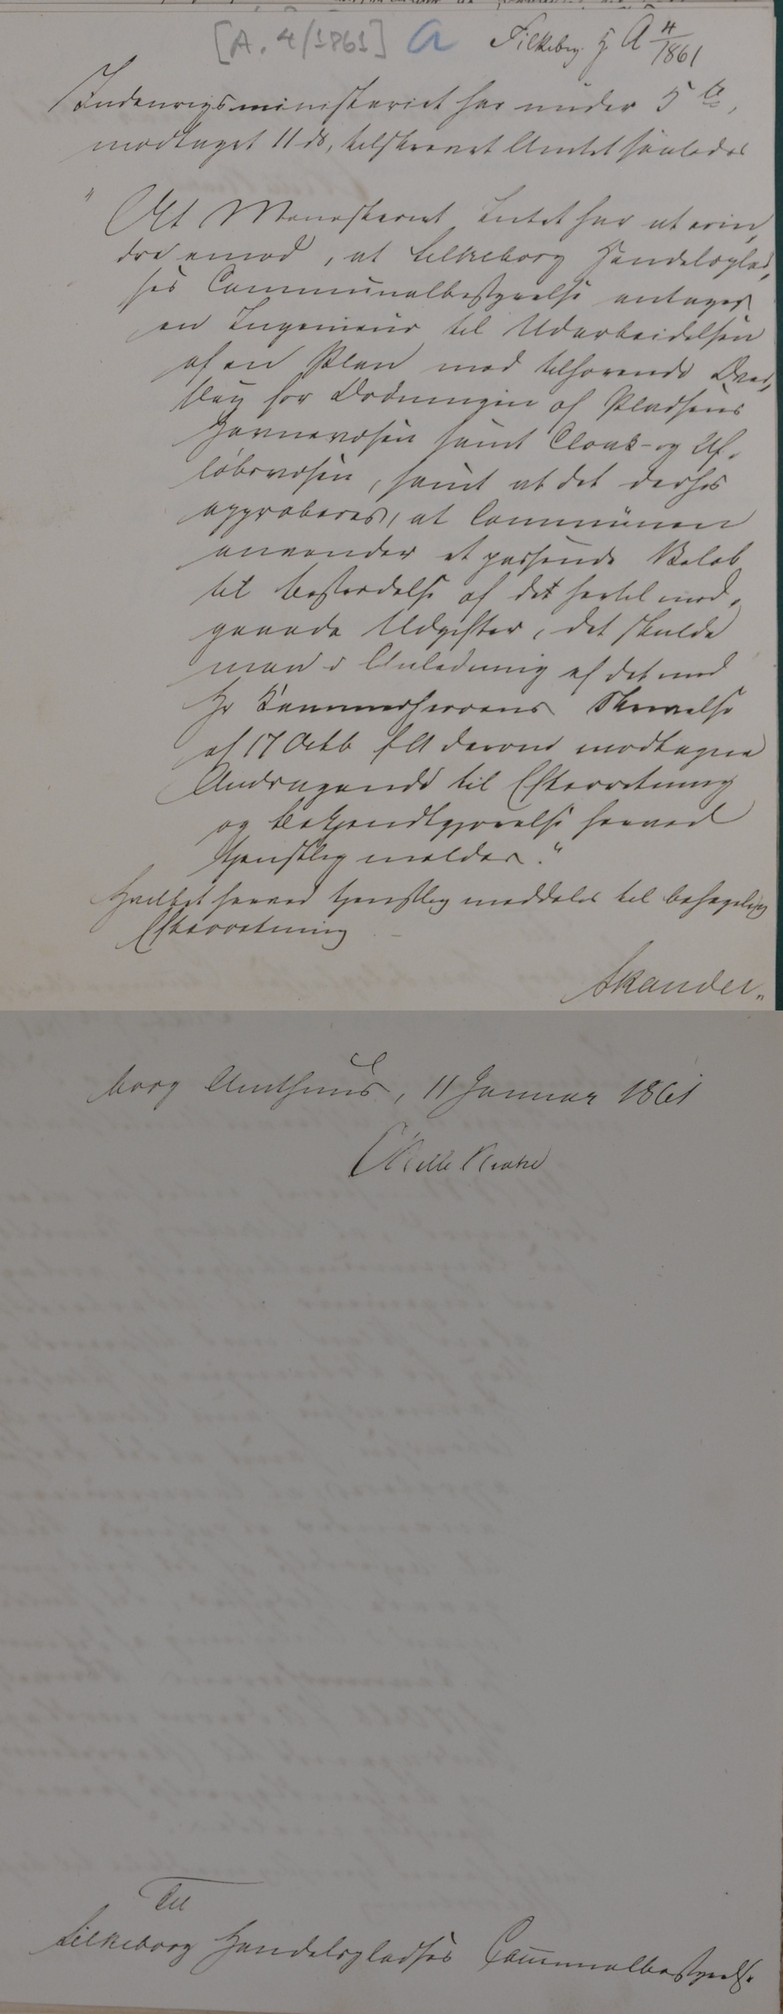 [A. 4/1861] a Silkeborg. H. A 4/1861
Indenrigsministeriet har under 5te,
modtaget 11 ds, tilskrevet Amtet saaledes
"At Ministeriet Intet har at erin,
dre imod, at Silkeborg Handelsplad,
ses Communalbestyrelse antager
en Ingenieur til Udarbeidelsen
af en Plan med tilhørende Over,
slag for Ordningen af Pladsens
Havnevæsen samt Cloak- og Af-
løbsvæsen, samt at det derhos
approberes, at Communen
anvender et passende Beløb
til Bestridelse af de hertil med,
gaaede Udgifter, det skulde
man i Anledning af det med
Hr Kammerherrens Skrivelse
af 17 Octb f A derom modtagne
Andragende til Efterretning
og Bekjendtgjørelse herved
tjenstlig melde."
Hvilket herved tjenstlig meddeles til behagelig
Efterretning
Skander,,
borg Amthuus, 11 Januar 1861
Til
Silkeborg Handelspladses Communalbestyrelse